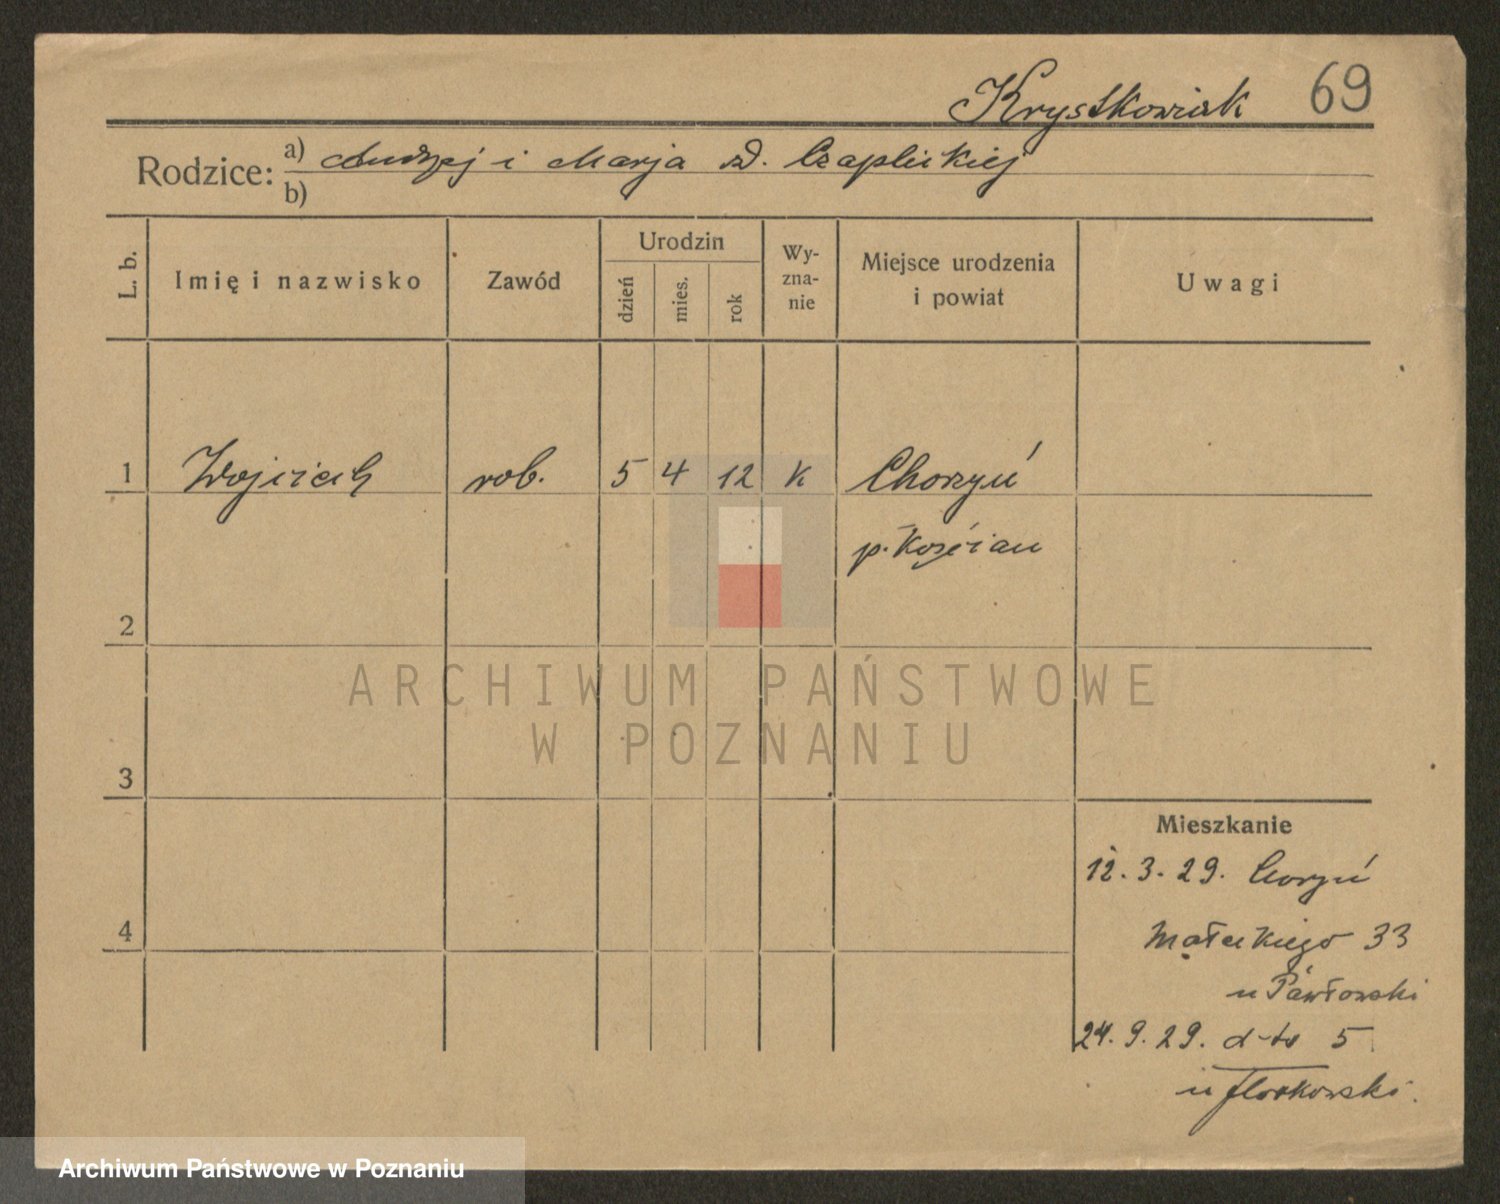 Krystkowiak 69
Rodzice: a) Andrzej i Marja zd. Czaplickiej
b)
L. b. Imię i nazwisko Zawód Urodzin dzień mies. rok Wy-zna-nie Miejsce urodzenia i powiat Uwagi
1 Wojciech rob. 5 4 12 k Choryń
p. Kościan
2
ARCHIWUM PAŃSTWOWE
W POZNANIU
3
Mieszkanie
12. 3. 29. Choryń
4 Małeckiego 33
u Pawłowski
24. 9. 29. d-to 5
u Florkowski.
Archiwum Państwowe w Poznaniu